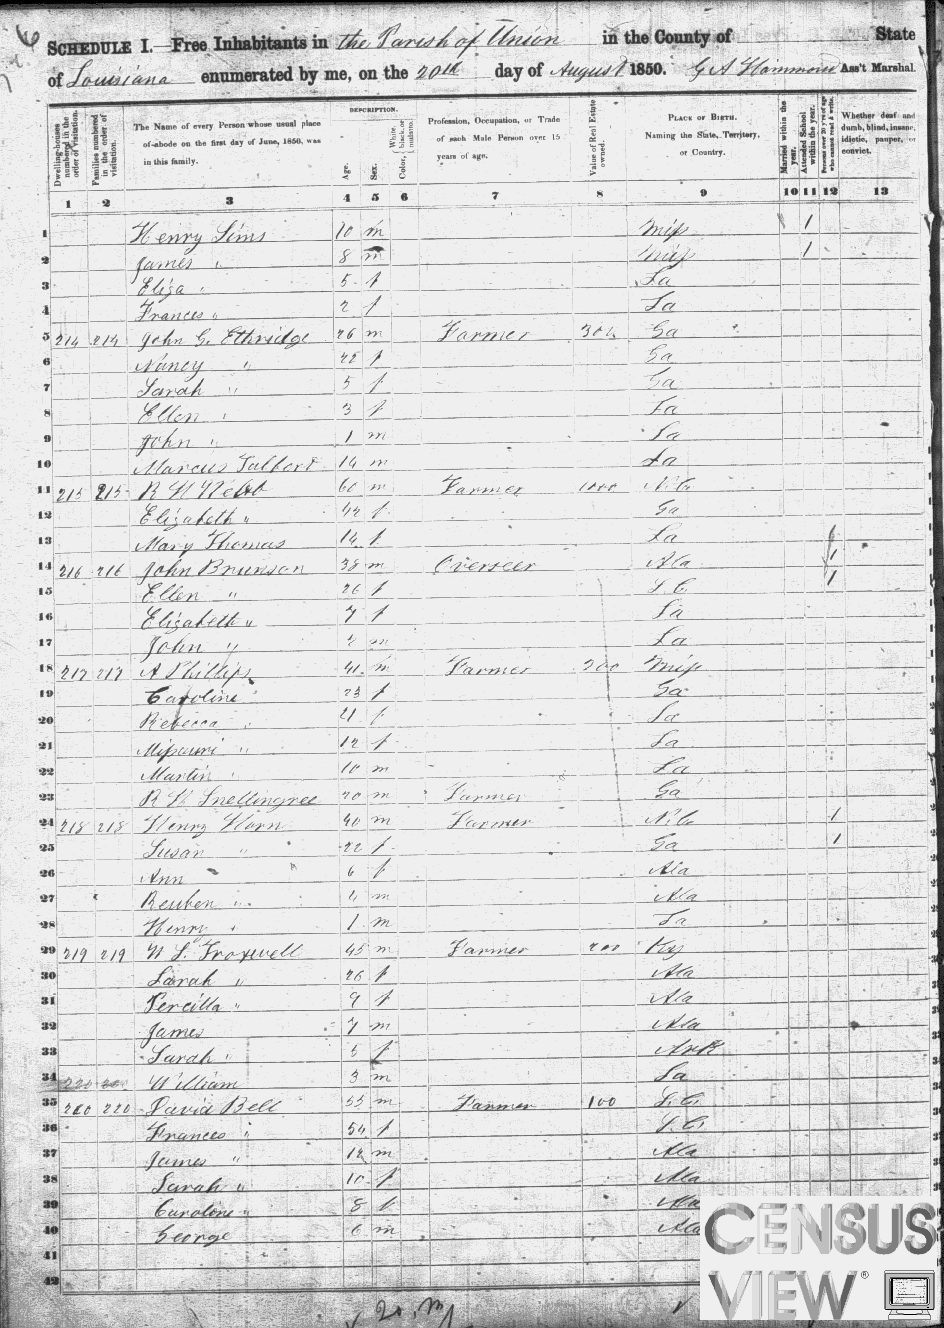 SCHEDULE I. Free Inhabitants in the Parish of Union in the County of State
of Louisiana enumerated by me, on the 20th day of August 1850. G A Hammond Ass't Marshal.
Dwelling-houses numbered in the order of visitation.
Families numbered in the order of visitation.
The Name of every Person whose usual place of abode on the first day of June, 1850, was in this family.
DESCRIPTION.
Age.
Sex.
Color, { White, black, or mulatto.
Profession, Occupation, or Trade of each Male Person over 15 years of age.
Value of Real Estate owned.
PLACE OF BIRTH. Naming the State, Territory, or Country.
Married within the year.
Attended School within the year.
Persons over 20 y'rs of age who cannot read & write.
Whether deaf and dumb, blind, insane, idiotic, pauper, or convict.
1 2 3 4 5 6 7 8 9 10 11 12 13
1 Henry Sims 10 m Miss 1
2 James " 8 m Miss 1
3 Eliza " 5 f La
4 Frances " 2 f La
5 214 214 John G. Ethridge 26 m Farmer Ga
6 Nancy " 22 f Ga
7 Sarah " 5 f Ga
8 Ellen " 3 f La
9 John " 1 m La
10 Marcus Talbert 14 m La
11 215 215 Farmer 1000 N.C
12 Elizabeth " 42 f Ga
13 Mary Thomas 14 f La
14 216 216 John Brunson 38 m Overseer Ala 1
15 Ellen " 26 f S.C. 1
16 Elizabeth " 7 f La
17 John " m La
18 217 217 A Phillips 41 m Farmer 200 Miss
19 Caroline " 23 f Ga
20 Rebecca " 21 f La
21 Missouri " 12 f La
22 Martin " 10 m La
23 20 m Farmer Ga
24 218 218 Henry Horn 40 m Farmer N.C 1
25 Susan " 22 f Ga 1
26 Ann 6 f Ala
27 Reuben " 4 m Ala
28 Henry " 1 m La
29 219 219 W L. Troxwell 45 m Farmer 200 Ky
30 Sarah " 26 f Ala
31 Percilla " 9 f Ala
32 James 7 m Ala
33 Sarah " 5 f Ark
34 William 3 m La
35 220 220 David Bell 55 m Farmer 100 S.C.
36 Frances " 54 f S.C.
37 James " 12 m Ala
38 Sarah " 10 f Ala
39 Caroline " 8 f Ala
40 George 6 m Ala
41
42
20. m
CENSUS
VIEW ®